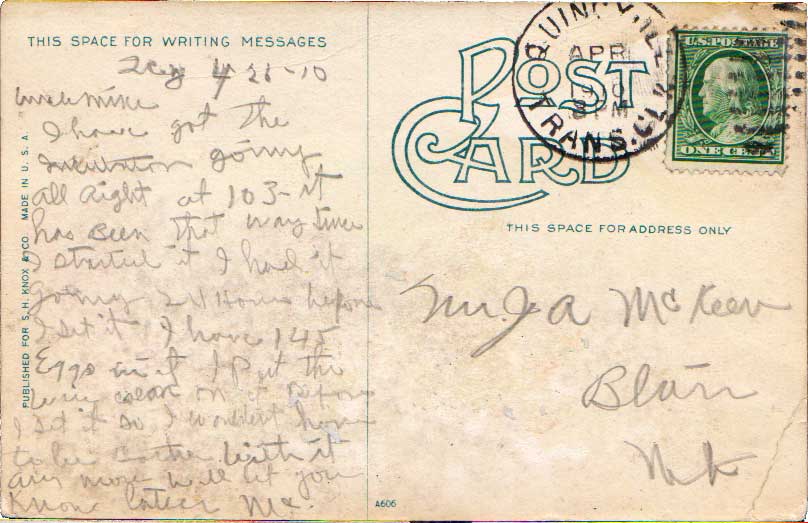 THIS SPACE FOR WRITING MESSAGES
4 26-10
Uncle Mike
I have got the
Incubator going
all right at 103- it
has been that way since
I started it I had it
going 24 Hours before
I set it I have 145
Eggs in it I Put the
on it Before
I set it so I wouldent have
to be with it
any more will let you
Know later Mc.
PUBLISHED FOR S. H. KNOX & CO. MADE IN U. S. A.
POST
CARD
QUINCY, ILL.
APR
1910
8 PM
TRANS. CLK.
U.S. POSTAGE
ONE CENT
THIS SPACE FOR ADDRESS ONLY
Mr J A McKeen
Blair
A606